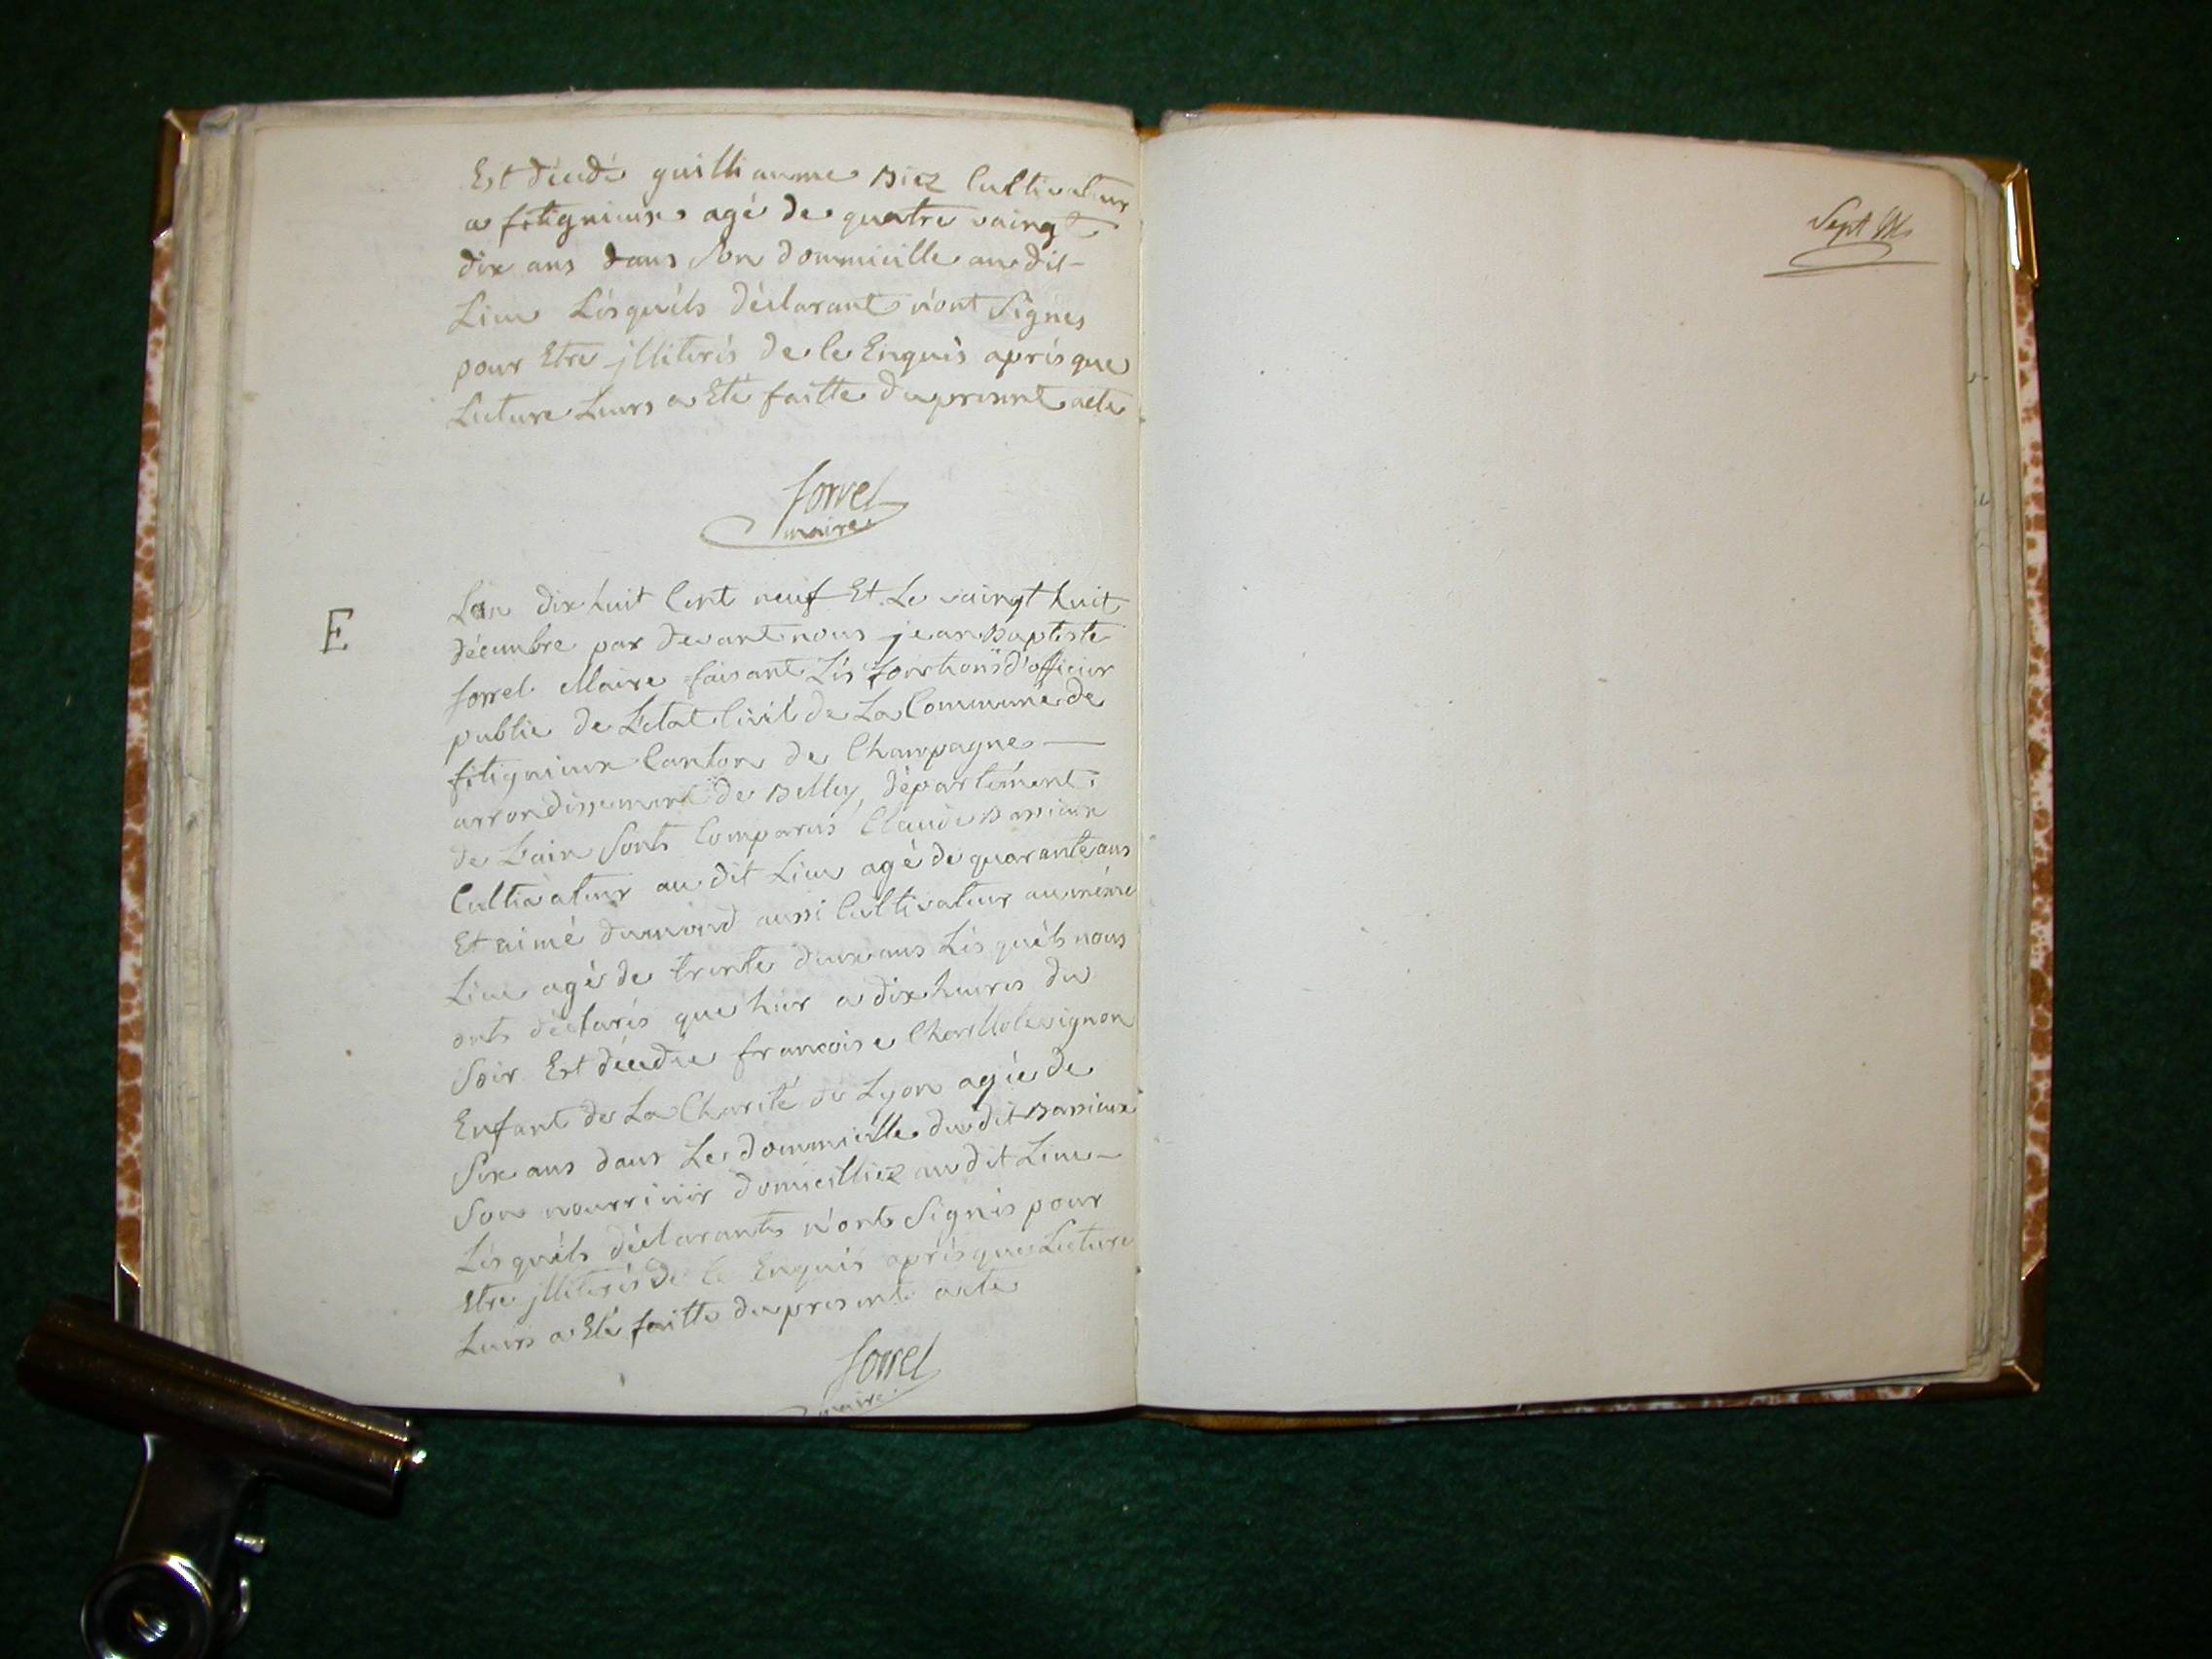 Est décédé guilliaume Biez Cultivateur
a fitignieux agé de quatre vaingt
dix ans dans Son dommicille au dit-
Lieu Lésquéls déclarant n'ont Signés
pour Etre jlliterés de le Enquis aprés que
Lecture Leurs a Eté faitte du present acte
forrel
maire
E
Lan dix huit Cent neuf Et Le vaingt huit
décembre par devant nous jean Baptiste
forrel Maire faisant Lés fonctions d'officier
public de L'etat Civil de La Commune de
fitignieux Canton de Champagne —
arrondissement de Belley, département
de L'ain Sonts Comparus Claude Bassieux
Cultivateur au dit Lieu agé de quarante ans
Et aimé dumond aussi Cultivateur au méme
Lieu agé de trente deux ans Lés quéls nous
onts déclarés que hier a dix heures du
Soir Est décedée francoise Charllote vignon
Enfant de La Charité de Lyon agée de
Six ans dans Le dommicille du dit Bassieux
Son nourricier domicilliez au dit Lieu —
Lés quéls déclarants n'ont Signés pour
Etre jlliterés de le Enquis aprés que Lecture
Leurs a Eté faitte du present acte
forrel
maire
Sept